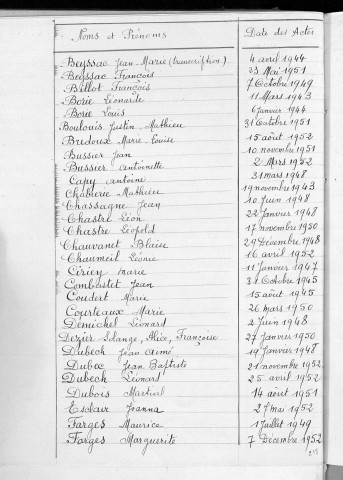 Noms et Prénoms Date des Actes
Beyssac Jean-Marie (transcription) 4 avril 1944
Beyssac François 23 Mai 1951
Billot François 7 Octobre 1949
Borie Léonarde 11 Mars 1943
Borie Louis 6 Janvier 1944
Boulouis Justin-Mathieu 31 Octobre 1951
Bredoux Marie-Louise 15 août 1952
Bussier Jean 10 novembre 1951
Bussier Antoinette 2 Mars 1952
Capy Antoine 31 mars 1948
Chabrerie Mathieu 19 novembre 1943
Chassagne Jean 10 Juin 1948
Chastre Léon 22 Janvier 1948
Chastre Léopold 17 novembre 1950
Chauvanet Blaise 29 Décembre 1948
Chaumeil Léonie 16 avril 1952
Ciriey Marie 11 Janvier 1947
Combastet Jean 31 Octobre 1945
Coudert Marie 15 août 1945
Courteaux Marie 26 mars 1950
Demichel Léonard 2 Juin 1948
Dezier Solange, Alice, Françoise 27 Janvier 1950
Dubech Jean Aimé 19 Janvier 1948
Dubec Jean Baptiste 21 novembre 1952
Dubech Léonard 25 avril 1952
Dubois Martial 14 août 1951
Esclair Joanna 27 Mai 1952
Farges Maurice 1 Juillet 1949
Farges Marguerite 7 Décembre 1952